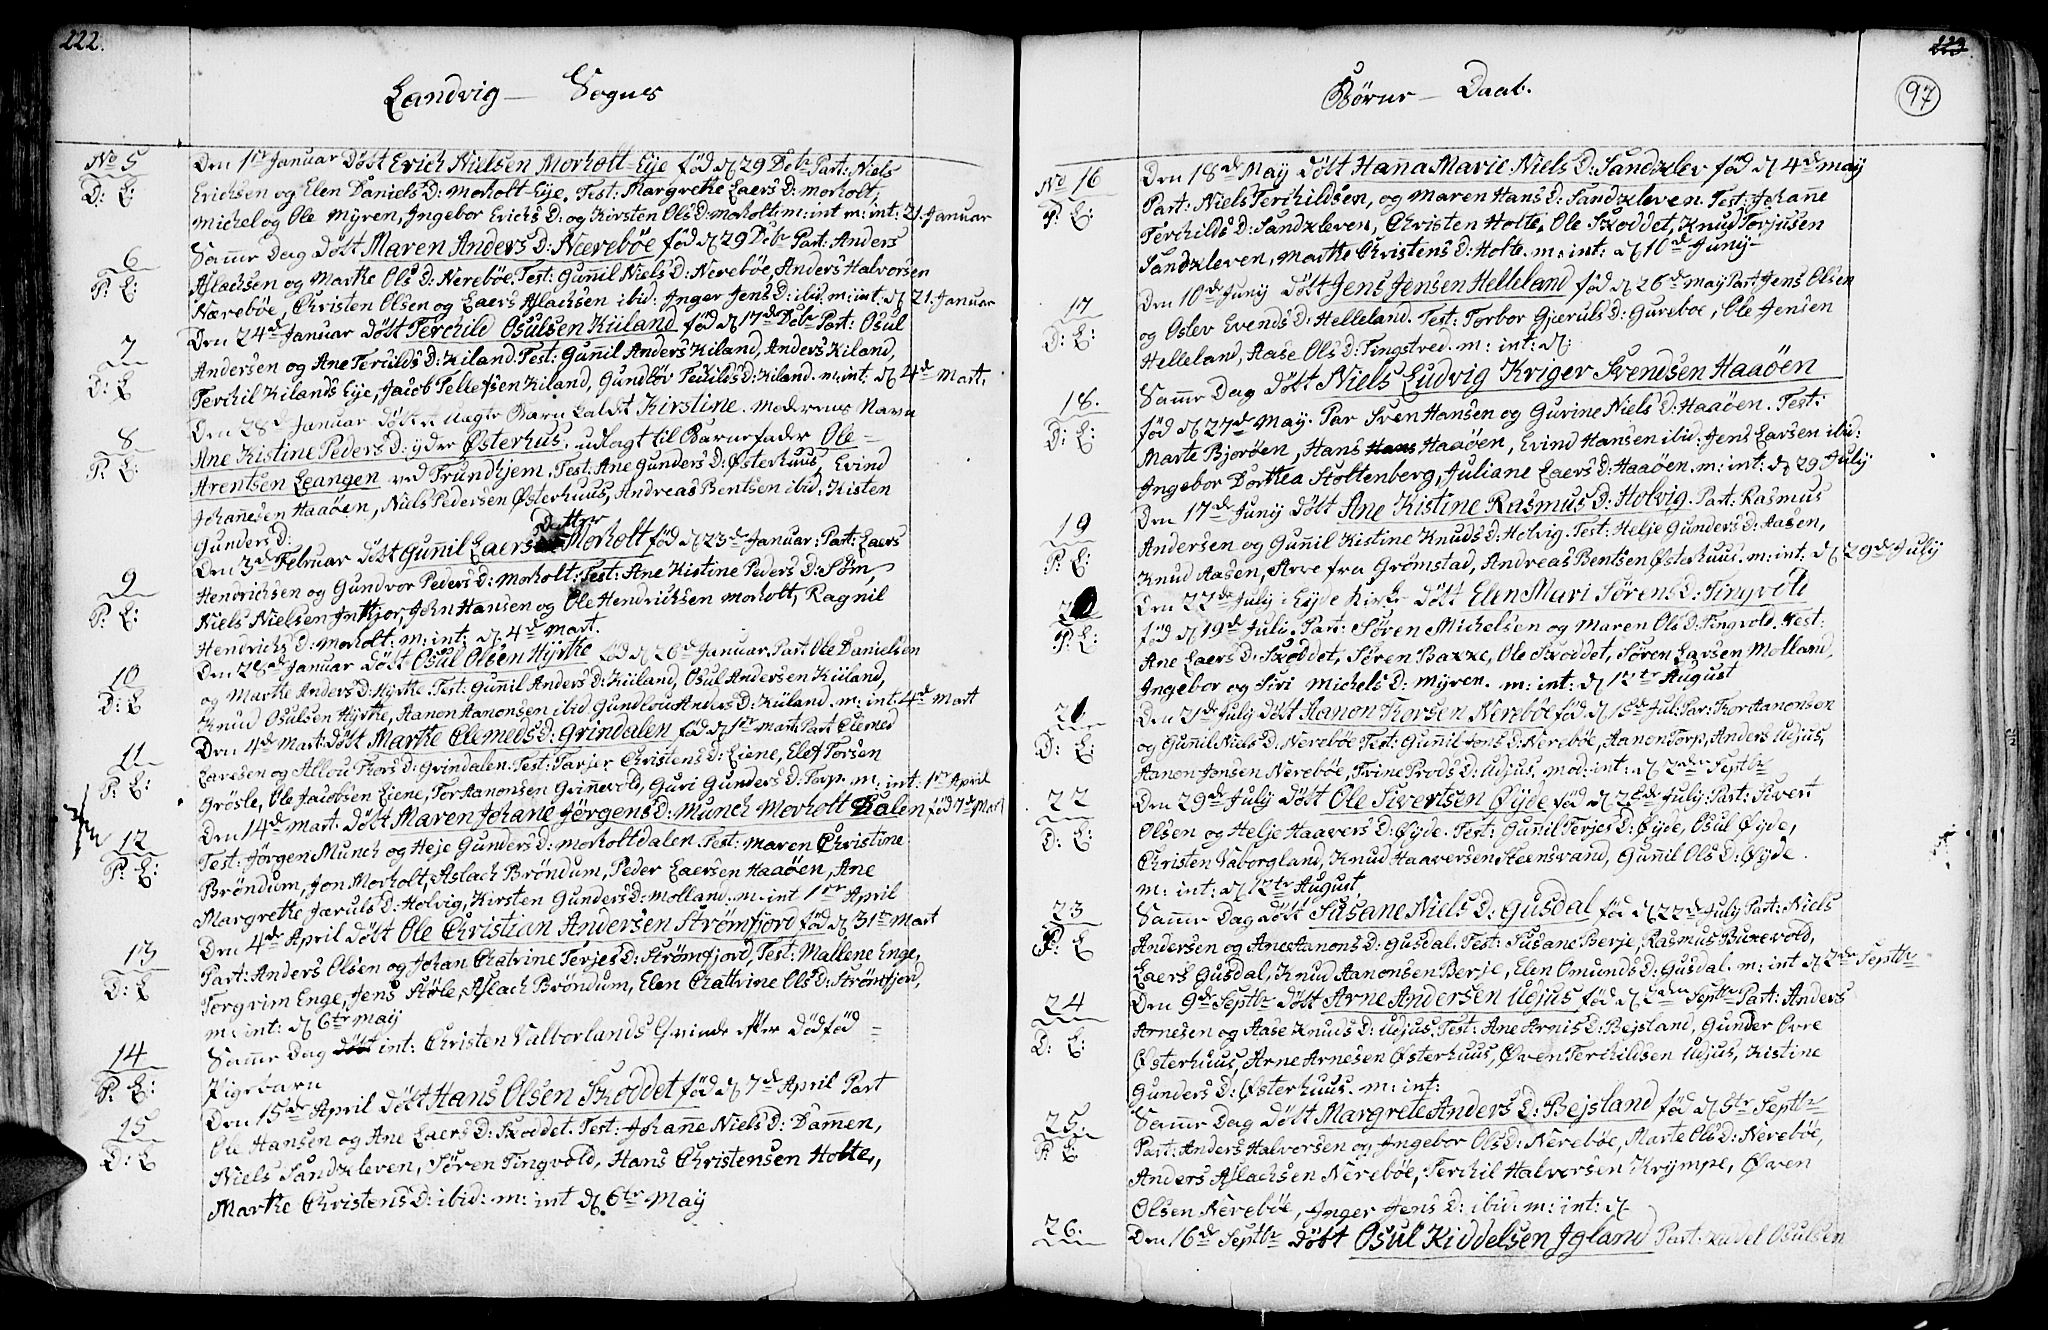 222.
Landvig — Sogns
No 5
D: E:
Den 1ste Januar Døbt Erich Nielsen Morholt-Eye fød d 29 Dcbr Part: Niels
Erichsen og Elen Daniels D: Morholt Eye. Test: Margrethe Laers D: Morholt,
Michel og Ole Myren, Ingebor Erichs D: og Kirsten Ols D: Morholt: m: int m: int: 21. Januar
6
P: E:
Samme Dag Døbt Maren Anders D: Nærebøe fød d 29 Dcbr Part: Anders
Aslachsen og Marthe Ols D: Nerebøe. Test: Gunnil Niels D: Nerebøe, Anders Halvorsen
Nærebøe, Christen Olsen og Laers Aslachsen ibid: Inger Jens D: ibid. m: int. d 21. Januar
7
D: E
Den 24de Januar Døbt Terchild Osulsen Kiiland fød d 17de Dcbr Part: Osul
Andersen og Ane Teruilds D: Kiland. Test: Gunil Anders Kiland, Anders Kiland,
Terchil Kilands Eye, Jacob Tellefsen Kiland, Gundløv Terkilds D: Kiland. m: int: d 4de Mart.
8
P: E:
Den 28de Januar Døbt et uægte Barn kaldt Kirstine. Moderens Navn
Ane Kistine Peders D: ydre Østerhus. udlagt til Barnefader Ole
Arentsen Leangen ved Trundhjem. Test: Ane Gunders D: Østerhuus, Evind
Johannesen Haaøen, Niels Pedersen Østerhuus, Andreas Bentsen ibid: Kisten
Gunders D:
9
P: E:
Datter
Den 3de Februar Døbt Gunnil Laers Morholt fød d 23de Januar: Part: Laers
Hendrichsen og Gundvor Peders D: Morholt: Test: Ane Kistine Peders D: Søm,
Niels Nielsen Inthjor, John Hansen og Ole Hendrichsen Morholt, Ragnil
Hendrichs D: Morholt: m: int: d 4de Mart.
10
D: E
Den 28de Januar Døbt Osul Olsen Hyrthe fød d 26de Januar. Part. Ole Danielsen
og Marthe Anders D: Hyrthe. Test: Gunil Anders D: Kiiland, Osul Andersen Kiiland,
Knud Osulsen Hyrthe, Aanon Aanonsen ibid. Gundlou Anders D: Kiiland. m: int: 4de Mart
11
P: E:
Den 4de Mart: Døbt Marthe Clemeds D: Grindalen fød d 1ste Mart. Part Clemed
Laresen og Allou Thors D: Grindalen. Test: Tarjer Christens D: Eiene, Elef Torsen
Grøsle, Ole Jacobsen Eiene, Tor Aanonsen Grinnevold, Guri Gunders D: Torp. m: int: 1ste April
12
P: E:
Den 14de Mart. Døbt Maren Johane Jörgens D: Munch Morholt Dalen fød 7de Mart
Test: Jörgen Munch og Heje Gunders D: Morholtdalen. Test: Maren Christine
Bröndum, Jon Morholt, Aslach Bröndum, Peder Laersen Haaöen, Ane
Margrethe Jæruls D: Holvig, Kirsten Gunders D: Molland. m. int 1ste April
13
D: E
Den 4de April Døbt Ole Christian Andersen Strömfjord fød d 31te Mart
Part: Anders Olsen og Johan Chatrine Terjes D: Strömfjord, Test: Mallene Enge,
Torgrim Enge, Jens Støle, Aslach Bröndum, Elen Chattrine Ols D: Strömfjord,
m: int: d 6te May
14
P: E:
Samme Dag døbt int: Christen Valborlands Qvinde efter dödfød
Pigebarn
15
D: E
Den 15de April Døbt Hans Olsen Skoddet fød d 7de April Part
Ole Hansen og Ane Laers D: Skoddet. Test: Johanne Niels D: Dammen,
Niels Sandkleven, Sören Tingvold, Hans Christensen Holte,
Marthe Christens D: ibid: m: int d 6te May
223
97
Børne — Daab.
No 16
P: E:
Den 18de May Döbt Hanna Marie Niels D: Sandklev fød d 4de May
Part: Niels Terchildsen, og Maren Hans D: Sandkleven. Test: Johanne
Terchilds D: Sandkleven, Christen Holte, Ole Skoddet, Knud Torjusen
Sandkleven, Marthe Christens D: Holte. m: int: d 10de Juny
17
D: E:
Den 10de Juny Döbt Jens Jensen Helleland fød d 26de May Part: Jens Olsen
og Oslev Evends D: Helleland. Test: Torbor Gjeruls D: Gureboe, Ole Jensen
Helleland, Aase Ols D: Tingstved. m: int: d
18.
D: E:
Samme Dag Döbt Niels Ludvig Kriger Svendsen Haaöen
fød d 27de May. Par Sven Hansen og Gurine Niels D: Haaöen. Test:
Marte Bjoröen, Hans Hans Haaöen, Evind Hansen ibid: Jens Larsen ibid:
Ingebor Dorthea Stoltenberg, Juliane Laers D: Haaöen. m: int: d 29 July
19
P: E:
Den 17de Juny Döbt Ane Kistine Rasmus D: Holvig. Part: Rasmus
Andersen og Gunnil Kistine Knuds D: Holvig. Test: Helje Gunders D: Aasen,
Knud Aasen, Arve fra Grömstad, Andreas Bentsen Østerhuus. m: int: d 29de July
20
P: E:
Den 22de July i Eyde Kirke Döbt Elen Mari Sörens D: Tingvold
fød d 19de July. Part: Sören Michelsen og Maren Ols D: Tingvold. Test:
Ane Laers D: Skoddet, Sören Bakke, Ole Skoddet, Sören Larsen Molland,
Ingebor og Siri Michels D: Myren. m: int: d 12te August
21
D: E:
Den 21de July Döbt Aanon Thorsen Nerebøe fød d 15de Jul: Par: Thor Aanonsen
og Gunnil Niels D: Nerebøe Test: Gunnil Jens D: Nerebøe, Aanon Torp, Anders Udjus,
Aanon Jensen Nerebøe, Trine Prods D: Udjus, mod: int: d 2den Septbr
22
D: E:
Den 29de July Döbt Ole Sivertsen Øyde fød d 25de July: Part: Sivert
Olsen og Helje Haavers D: Øyde. Test: Gunnil Terjes D: Øyde, Osul Øyde,
Christen Vaborgland, Knud Haaversen Steensvand, Gunnil Ols D: Øyde.
m: int: d 12te August
23
P: E
Samme Dag döbt Susane Niels D: Gusdal fød d 22de July Part: Niels
Andersen og Ane Aanons D: Gusdal. Test: Susane Berje, Rasmus Buxevold,
Laers Gusdal, Knud Aanonsen Berje, Elen Omunds D: Gusdal. m: int d 2den Septbr
24
D: E:
Den 9de Septbr Döbt Arne Andersen Udjus fød d 2den Septbr Part: Anders
Arnesen og Aase Knuds D: Udjus. Test: Ane Arnis D: Bejsland, Gunder Ovre
Østerhuus, Arne Arnesen Østerhuus, Øven Terchildsen Udjus, Kistine
Gunders D: Østerhuus. m: int:
25.
P: E
Samme Dag Döbt Margrete Anders D: Bejsland fød d 5te Septbr
Part: Anders Halvorsen og Ingebor Ols D: Nerebøe, Marte Ols D: Nerebøe,
Anders Aslachsen Nerebøe, Terchil Halversen Krympe, Øven
Olsen Nerebøe, Inger Jens D: ibid: m: int: d
26.
Den 16de Septbr Döbt Osul Kiddelsen Igland Part: Kidel Osulsen